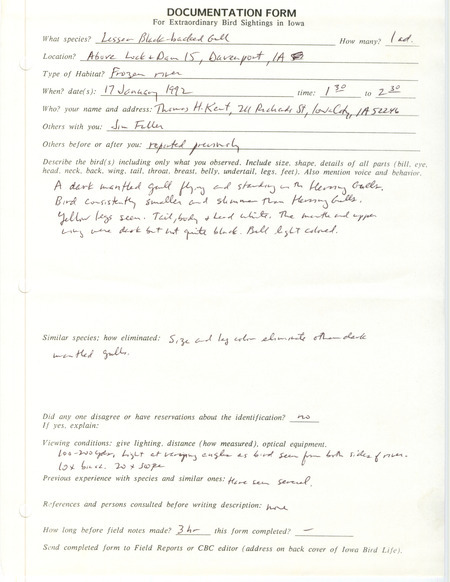 DOCUMENTATION FORM
For Extraordinary Bird Sightings in Iowa
What species? Lesser Black-backed Gull How many? 1 ad.
Location? Above Lock & Dam 15, Davenport, IA
Type of Habitat? Frozen river
When? date(s): 17 January 1992 time: 1 30 to 2 30
Who? your name and address: Thomas H. Kent, 211 Richards St, Iowa City, IA 52246
Others with you: Jim Fuller
Others before or after you: reported previously
Describe the bird(s) including only what you observed. Include size, shape, details of all parts (bill, eye,
head, neck, back, wing, tail, throat, breast, belly, undertail, legs, feet). Also mention voice and behavior.
A dark mantled gull flying and standing with Herring Gulls.
Bird consistently smaller and slimmer than Herring Gulls.
Yellow legs seen. Tail, body & head white. The mantle and upper
wing were dark but not quite black. Bill light colored.
Similar species; how eliminated: Size and leg color eliminate other dark
mantled gulls.
Did any one disagree or have reservations about the identification? no
If yes, explain:
Viewing conditions: give lighting, distance (how measured), optical equipment.
100-200 yds, light at varying angles as bird seen from both sides of river.
10x binoc. 20x scope
Previous experience with species and similar ones: Have seen several.
References and persons consulted before writing description: none
How long before field notes made? 3 hr this form completed? –
Send completed form to Field Reports or CBC editor (address on back cover of Iowa Bird Life).